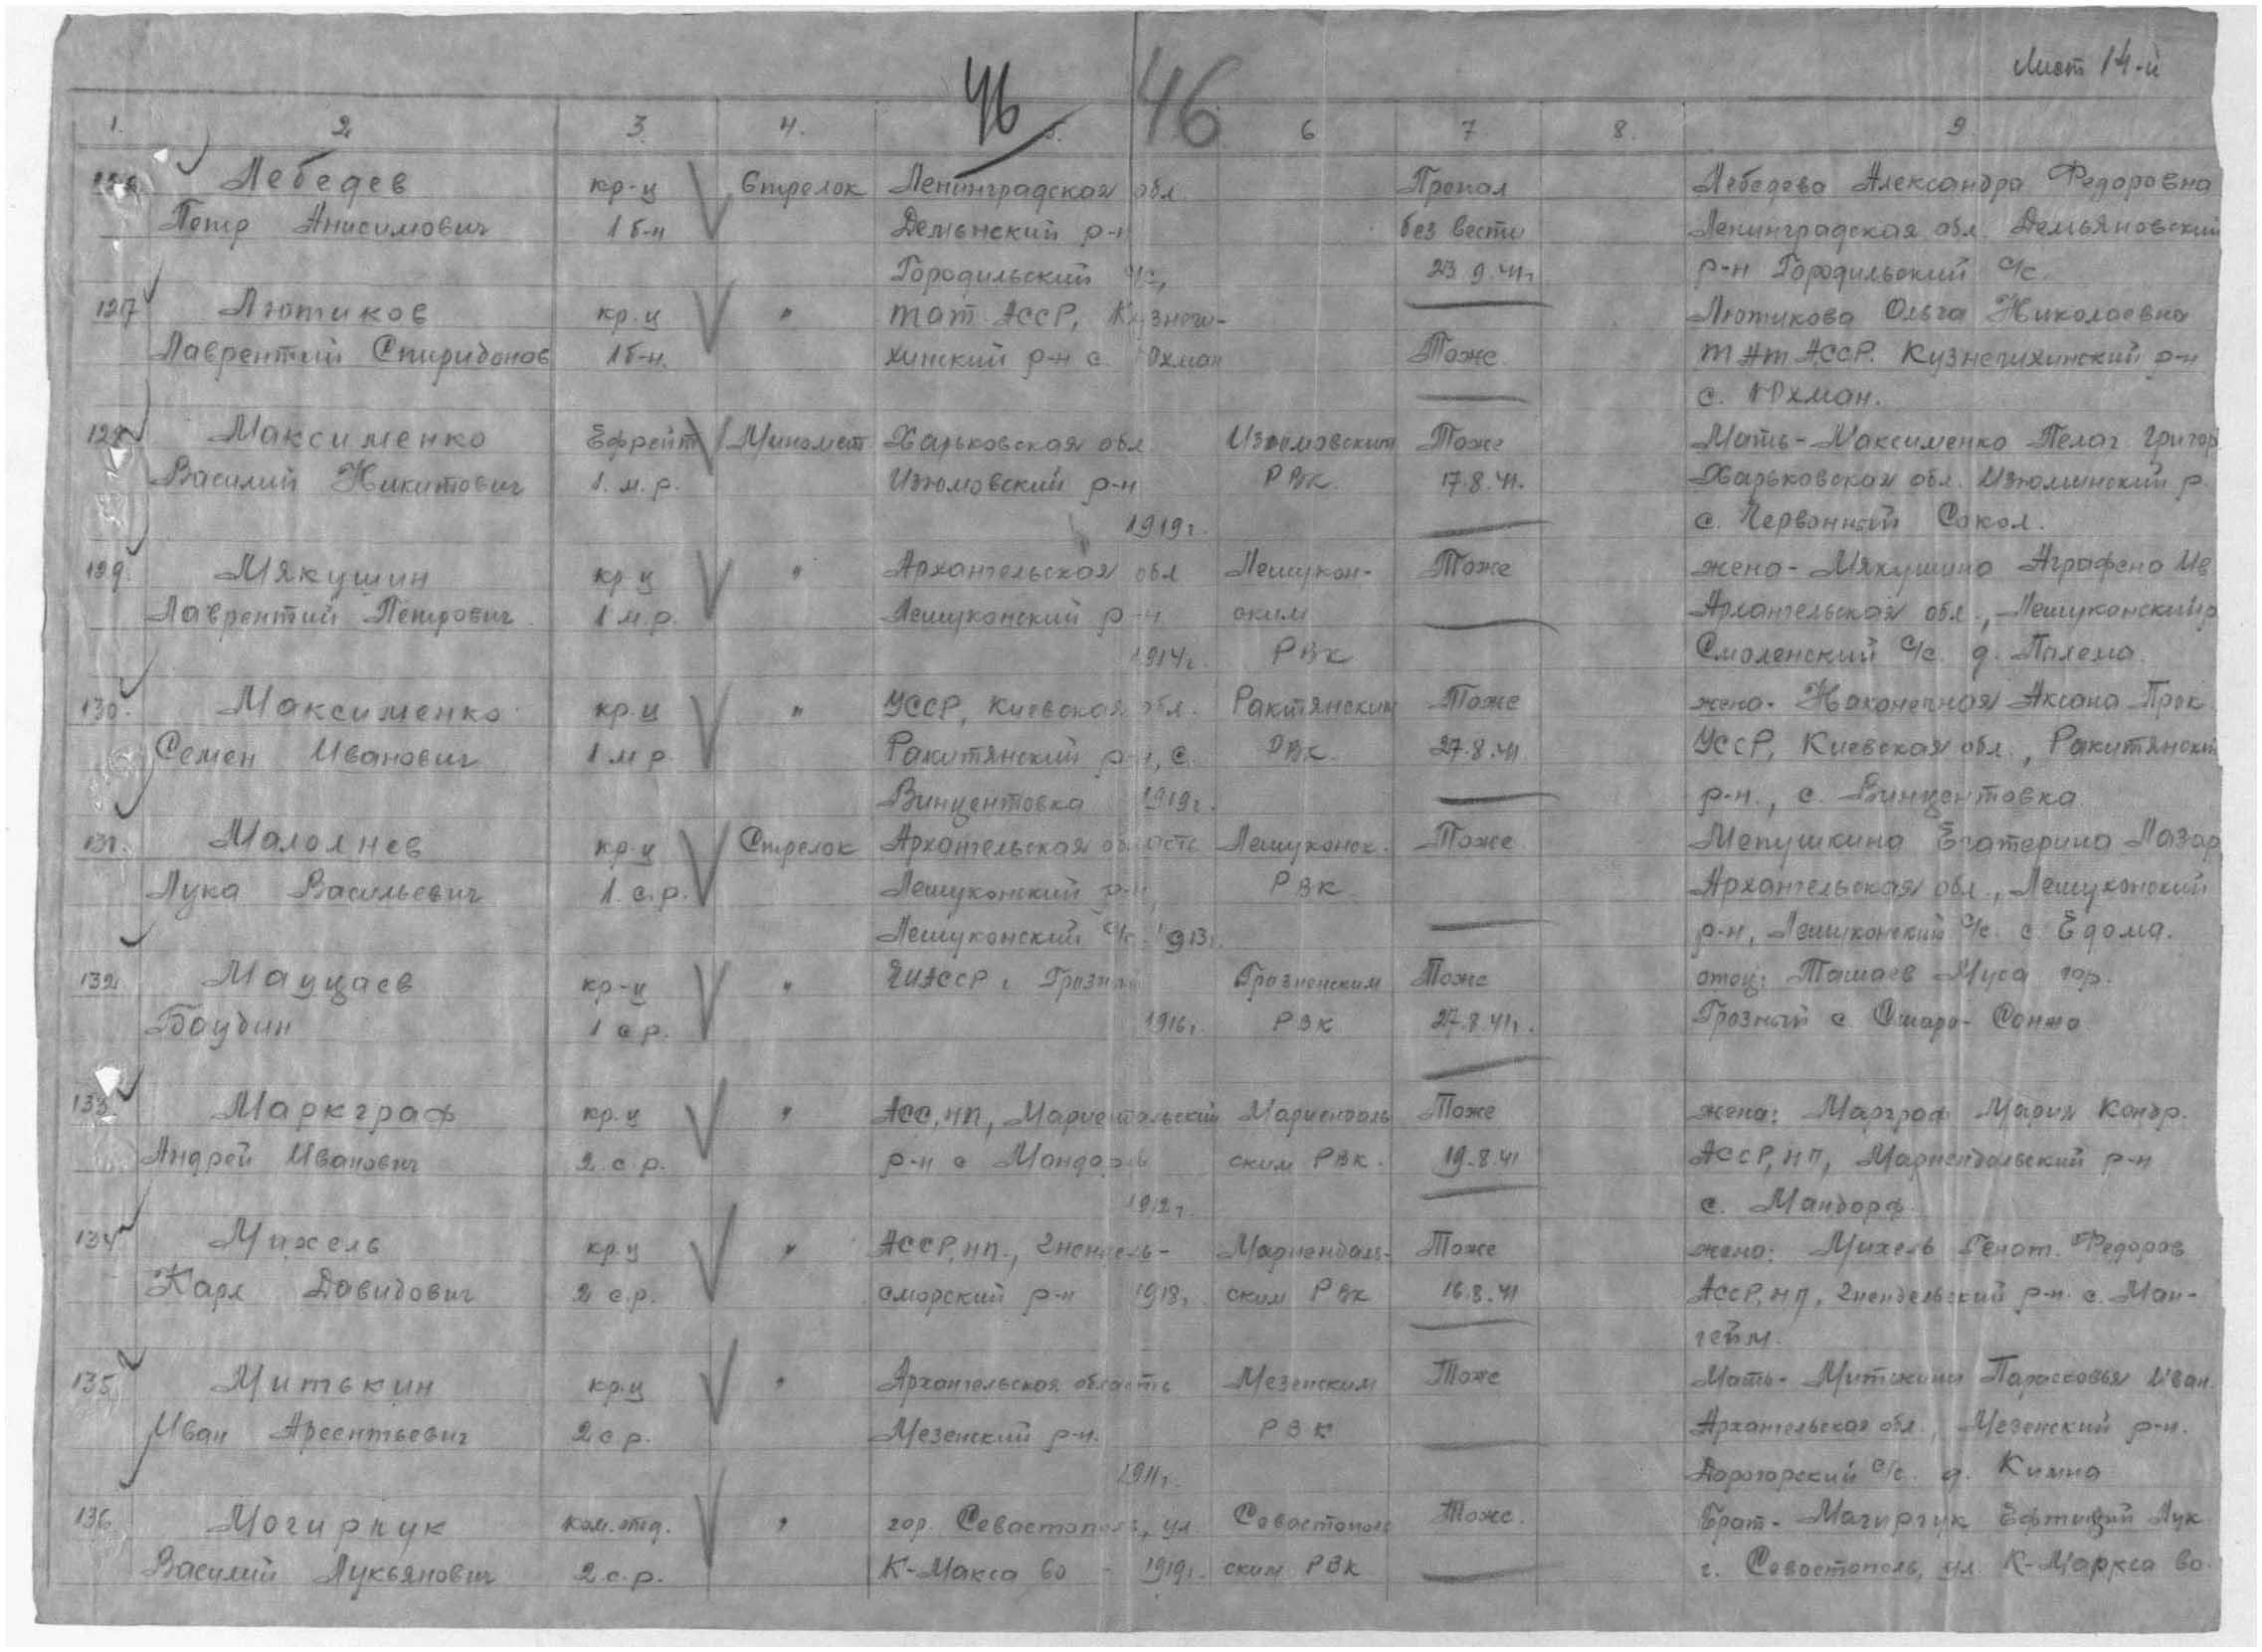 Лист 14-й
46 46
1. 2 3 4. 5. 6 7 8. 9
126 Лебедев кр-ц Стрелок Ленинградская обл Пропал Лебедева Александра Федоровна
Петр Анисимович 1 б-н Демьнский р-н без вести Ленинградская обл. Демьяновский
Городильский с/с, 23 9.41г р-н Городильский с/с.
127 Лютиков кр.ц " Тат АССР, Кузнечи- Лютикова Ольга Николаевна
Лаврентий Спиридонов 1б-н. хинский р-н с. Юхман Тоже. Тат АССР. Кузнечихинский р-н
с. Юхман.
128 Максименко Ефрейт Миномет Харьковская обл Изюмовским Тоже Мать-Максименко Пелаг Григор
Василий Никитович 1. м.р. Изюмовский р-н РВК. 17.8.41. Харьковская обл. Изюминский р
1919г. с. Червонный Сокол.
129. Мякушин кр-ц " Архангельская обл Лешукон- Тоже жена-Мякушина Аграфена Ив
Лаврентий Петрович 1 м.р. Лешуконский р-н ским Архангельская обл., Лешуконский р
1914г. РВК Смоленский с/с. д. Палема.
130. Максименко кр.ц " УССР, Киевская обл. Ракитянским Тоже жена-Наконечная Аксана Прок
Семен Иванович 1 м р. Ракитянский р-н, с. РВК. 27.8.41 УССР, Киевская обл., Ракитянский
Винцентовка 1919г. р-н., с. Винцентовка
131. Малолнев кр-ц Стрелок Архангельская область Лешуконск. Тоже Мепушкина Екатерина Лазар
Лука Васильевич 1. с.р. Лешуконский р-н РВК Архангельская обл., Лешуконский
Лешуконский с/с. 1913г. р-н, Лешуконский с/с. с Едома.
132 Мауцаев кр-ц " ЧИАССР г. Грозный Грозненским Тоже отец: Ташаев Муса гор.
Баудин 1 с р. 1916г. РВК 27.8.41г. Грозный с. Старо-Сонжа
133 Маркграф кр.ц " АСС,НП, Мариентальский Мариендаль Тоже жена: Марграф Мария Кондр.
Андрей Иванович 2.с.р. р-н с Мандорф ским РВК. 19.8.41 АССР,НП, Мариендальский р-н
1912г. с. Мандорф
134 Михель кр.ц " АССР,НП., Гнендель- Мариендаль- Тоже жена: Михель Генот. Федоров
Карл Давидович 2 с.р. сморский р-н 1918г. ским РВК 16.8.41 АССР,НП, Гнендельский р-н. с. Ман-
гейм.
135 Митькин кр.ц " Архангельская область Мезенским Тоже Мать-Митькина Парасковья Иван.
Иван Арсентьевич 2 с р. Мезенский р-н. РВК Архангельская обл., Мезенский р-н.
1911г. Дорогорский с/с. д. Кимна
136 Могирчук ком.отд. " гор. Севастополь, ул Севастополь Тоже. Брат-Магирчук Ефтифий Лук
Василий Лукьянович 2.с.р. К-Макса 60 - 1919г. ским РВК г. Севастополь, ул К-Маркса 60.